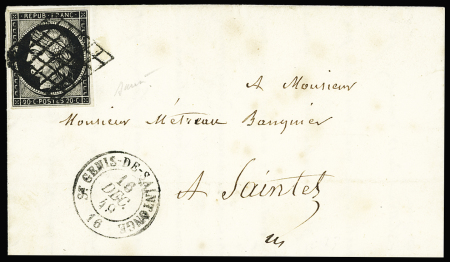 REPUB. FRANC.
20 C. POSTES 20 C.
A Monsieur
Monsieur Métreau Banquier
A Saintes
ST GENIS-DE-SAINTONGE
16
DEC.
49
16